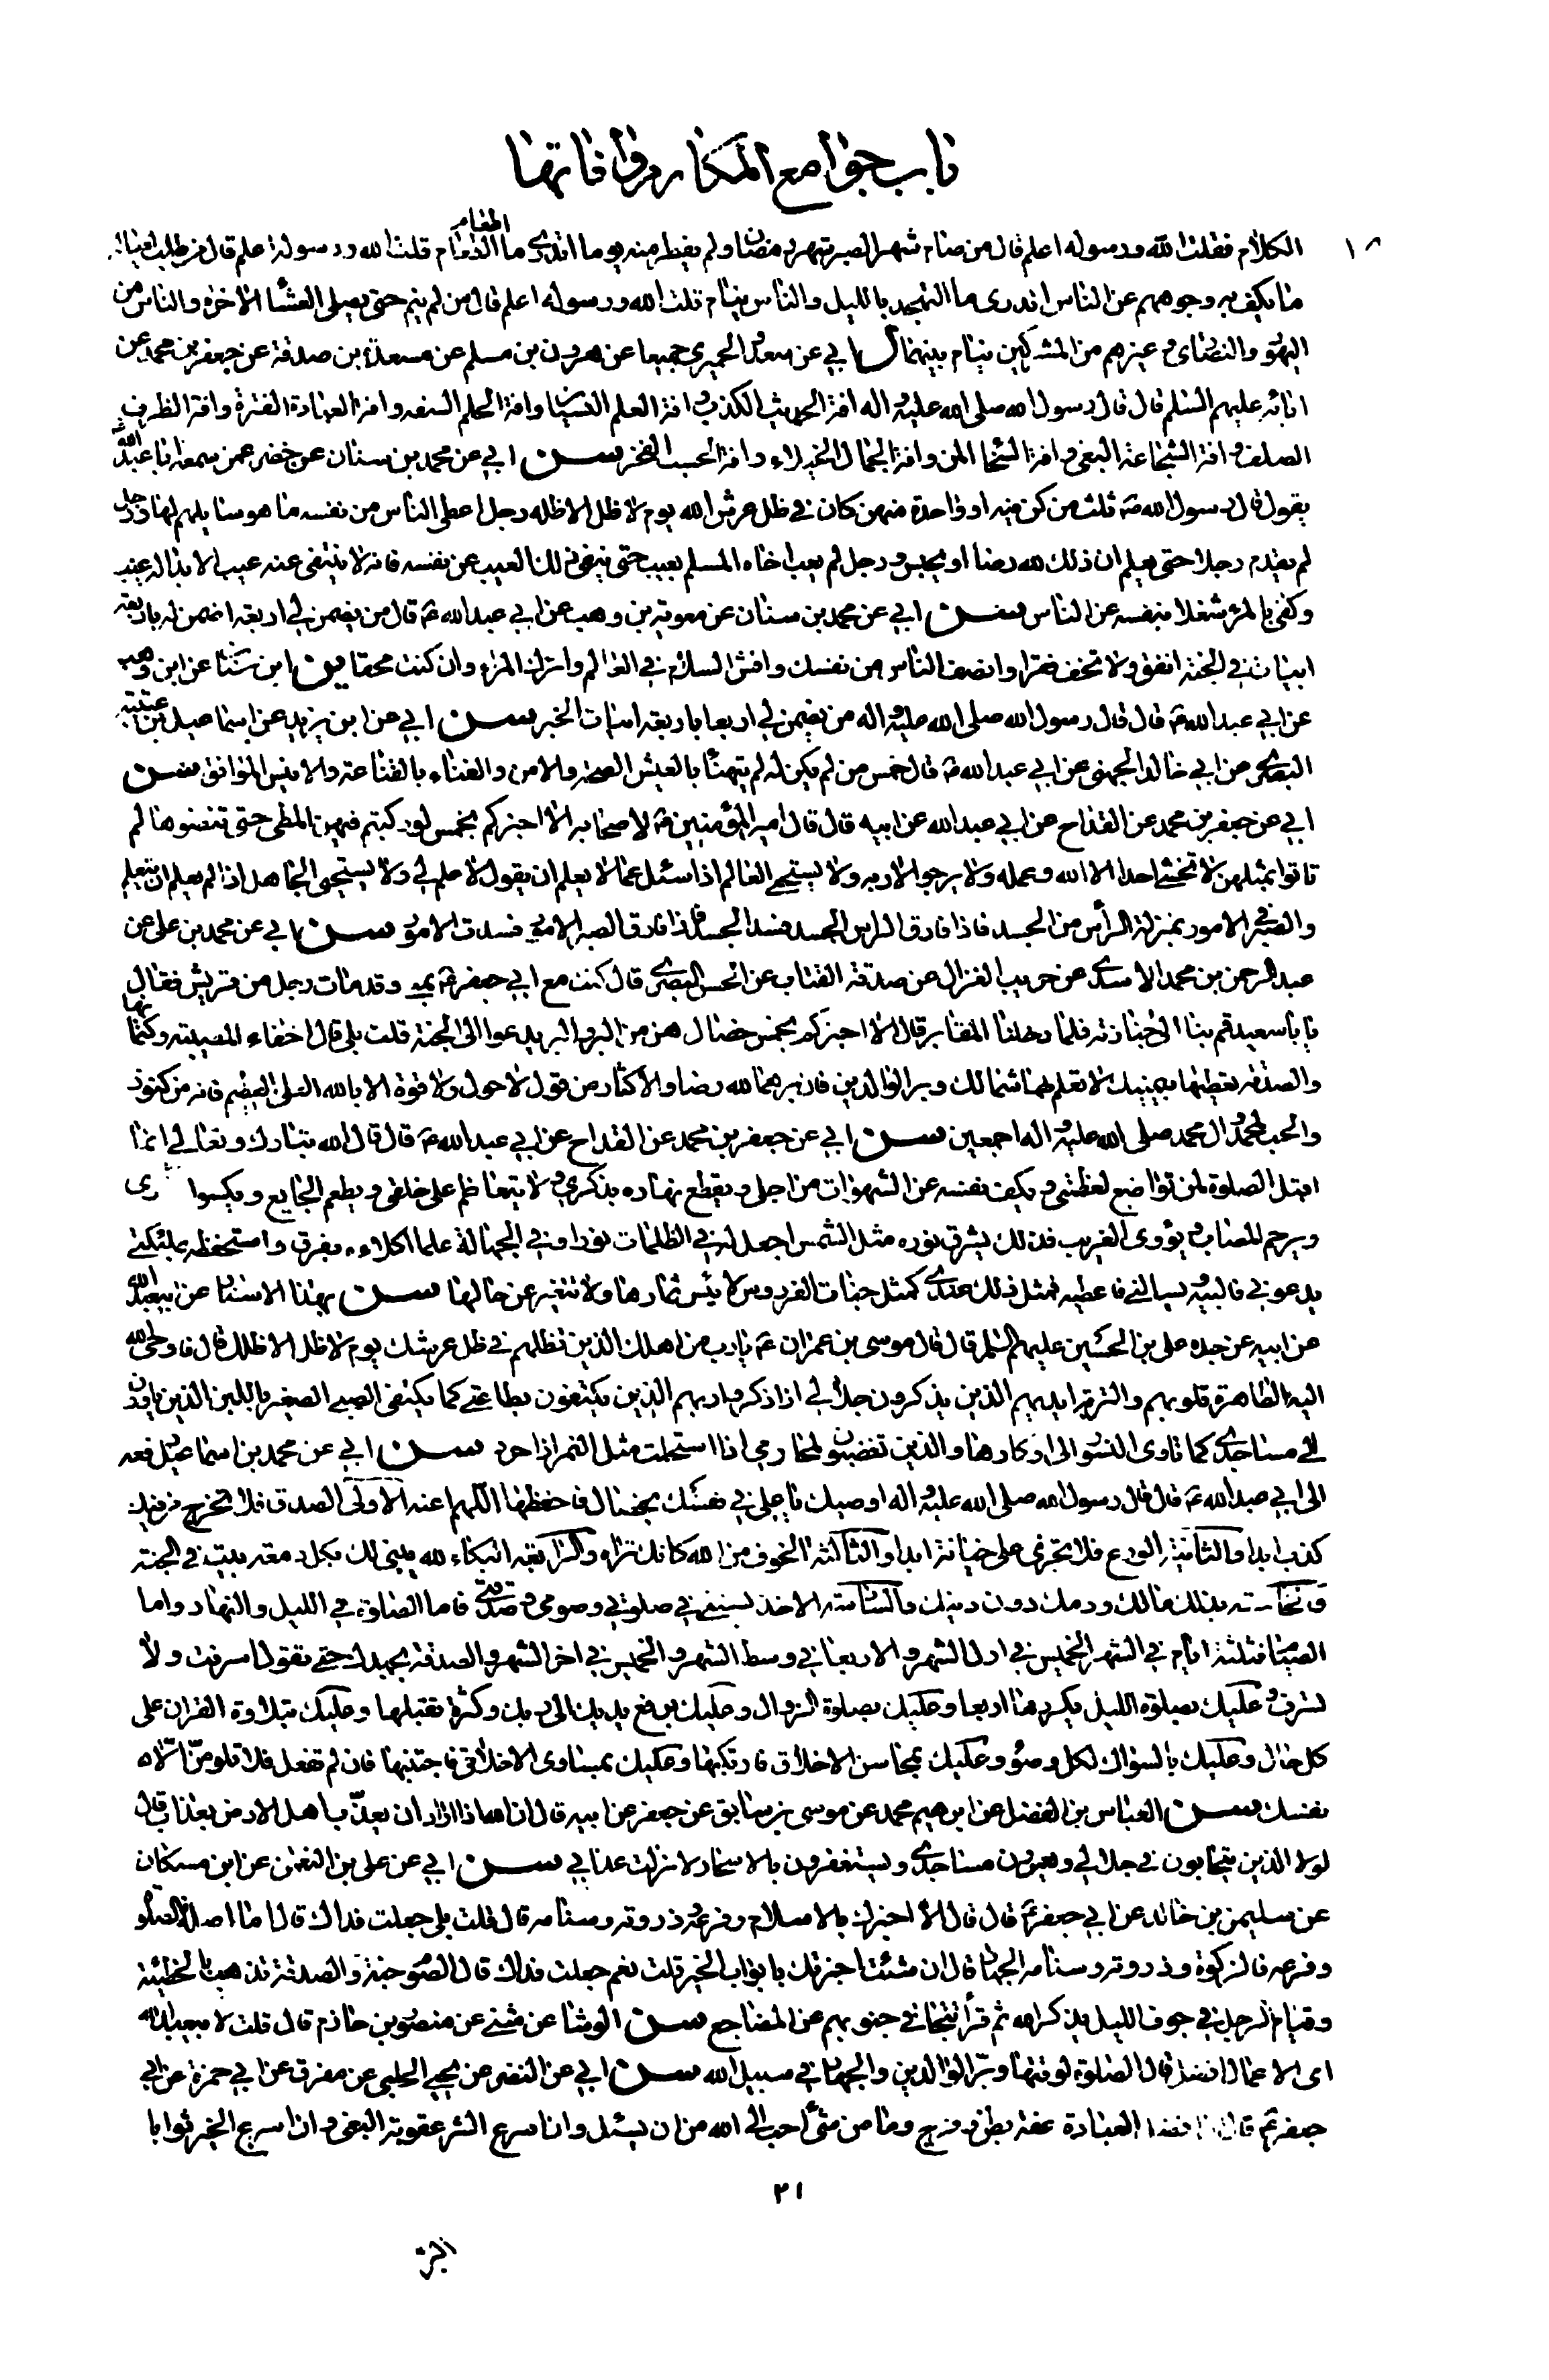 باب جوامع المكارم وافاتها
١٨
الكلام فقلت الله ورسوله اعلم قال من صام شهر الصبر شهر رمضان ولم يفطر منه يوما اتدري ما اطعام الطعام قلت الله ورسوله اعلم قال من طلب لعياله
ما يكف به وجوههم عن الناس اتدري ما التهجد بالليل والناس نيام قلت الله ورسوله اعلم قال من لم ينم حتى يصلي العشا الاخرة والناس من
اليهود والنصارى وغيرهم من المشركين نيام بينهما ل ابي عن سعد والحميري جميعا عن هرون بن مسلم عن مسعدة بن صدقة عن جعفر بن محمد عن
ابائه عليهم السلم قال قال رسول الله صلى الله عليه واله افة الحديث الكذب وافة العلم النسيان وافة الحلم السفه وافة العبادة الفترة وافة الظرف
الصلف وافة الشجاعة البغي وافة السخا المن وافة الجمال الخيلاء وافة الحسب الفخر سن ابي عن محمد بن سنان عن خضر عمن سمع ابا عبد الله
يقول قال رسول الله ص ثلث من كن فيه او واحدة منهن كان في ظل عرش الله يوم لا ظل الا ظله رجل اعطى الناس من نفسه ما هو سايلهم لها ورجل
لم يقدم رجلا حتى يعلم ان ذلك لله رضا او يحبس ورجل لم يعب اخاه المسلم بعيب حتى ينفي ذلك العيب عن نفسه فانه لا ينتفي عنه عيب الا بدا له عيب
وكفى بالمرء شغلا بنفسه عن الناس سن ابي عن محمد بن سنان عن معوية بن وهب عن ابي عبد الله ع قال من يضمن لي اربعة اضمن له باربعة
ابيات في الجنة انفق ولا تخف فقرا وانصف الناس من نفسك وافش السلام في العالم واترك المراء وان كنت محقا ين ابن سنان عن ابن وهب
عن ابي عبد الله ع قال قال رسول الله صلى الله عليه واله من يضمن لي اربعا باربعة ابيات الخبر سن ابي عن ابن يزيد عن اسماعيل بن قتيبة
البصري عن ابي خالد الجهني عن ابي عبد الله ع قال خمس من لم يكن له لم يتهنأ بالعيش الصحة والامن والغناء بالقناعة والانيس الموافق سن
ابي عن جعفر بن محمد عن القداح عن ابي عبد الله عن ابيه قال قال امير المؤمنين ع لاصحابه الا اخبركم بخمس لو ركبتم فيهن المطي حتى تنضوها لم
تاتوا بمثلهن لا تخشى احدا الا الله وعمله ولا يرجو الا ربه ولا يستحي العالم اذا سئل عما لا يعلم ان يقول لا علم لي ولا يستحيي الجاهل اذا لم يعلم ان يتعلم
والصبر في الامور بمنزلة الرأس من الجسد فاذا فارق الراس الجسد فسد الجسد فاذا فارق الصبر الامور فسدت الامور سن ابي عن محمد بن علي عن
عبد الرحمن بن محمد الاسدي عن حريب الغزال عن صدقة القتاب عن الحسن البصري قال كنت مع ابي جعفر ع بمنى وقد مات رجل من قريش فقال
يا باسعيد قم بنا الى جنازته فلما دخلنا المقابر قال الا اخبركم بخمس خصال هن من البر والبر يدعوا الى الجنة قلت بلى قال اخفاء المصيبة وكتمانها
والصدقة تعطيها بيمينك لا تعلم بها شمالك وبر الوالدين فان برهما لله رضا والاكثار من قول لا حول ولا قوة الا بالله العلي العظيم فانه من كنوز
والحب لمحمد وال محمد صلى الله عليه واله اجمعين سن ابي عن جعفر بن محمد عن القداح عن ابي عبد الله ع قال قال الله تبارك وتعالى انما
اقبل الصلوة لمن تواضع لعظمتي ويكف نفسه عن الشهوات من اجلي ويقطع نهاره بذكري ولا يتعاظم على خلقي ويطعم الجايع ويكسوا
ويرحم المصاب ويؤوي الغريب فذلك يشرق نوره مثل الشمس اجعل له في الظلمات نورا وفي الجهالة علما اكلاءه بعزتي واستحفظه ملئكتي
يدعوني فالبيه ويسالني فاعطيه فمثل ذلك عندي كمثل جنات الفردوس لا ييبس ثمارها ولا تتغير عن حالها سن بهذا الاسناد عن ابي عبد الله
عن ابيه عن جده علي بن الحسين عليهم السلم قال قال موسى بن عمران ع يا رب من اهلك الذين تظلهم في ظل عرشك يوم لا ظل الا ظلك قال فاوحى الله
اليه الطاهرة قلوبهم والتربة ايديهم الذين يذكرون جلالي اذا ذكروا ربهم الذين يكتفون بطاعتي كما يكتفي الصبي الصغير باللبن الذين ياوون
الى مساجدي كما تاوى النسور الى اوكارها والذين تغضبون لمحارمي اذا استحلت مثل النمر اذا حرد سن ابي عن محمد بن اسماعيل رفعه
الى ابي عبد الله ع قال قال رسول الله صلى الله عليه واله اوصيك يا علي في نفسك بخصال فاحفظها اللهم اعنه الاولى الصدق فلا تخرج من فيك
كذب ابدا والثانية الورع فلا تجترئ على خيانة ابدا والثالثة الخوف من الله كانك تراه والرابعة البكاء لله يبنى لك بكل دمعة بيت في الجنة
والخامسة بذلك مالك ودمك دون دينك والسادسة الاخذ بسنتي في صلوتي وصومي وصدقتي فاما الصلوة في الليل والنهار واما
الصيام فثلثة ايام في الشهر الخميس في اول الشهر والاربعا في وسط الشهر والخميس في اخر الشهر والصدقة بجهدك حتى تقول اسرفت ولا
تسرف وعليك بصلوة الليل يكررها اربعا وعليك بصلوة الزوال وعليك برفع يديك الى ربك وكثرة تقلبها وعليك بتلاوة القران على
كل حال وعليك بالسواك لكل وضوء وعليك بمحاسن الاخلاق فارتكبها وعليك بمساوى الاخلاق فاجتنبها فان لم تفعل فلا تلومن الا
نفسك سن العباس بن الفضل عن ابرهيم محمد عن موسى بن سابق عن جعفر عن ابيه قال ان الله اذا اراد ان يعذب اهل الارض بعذاب قال
لولا الذين يتحابون في جلالي ويعمرون مساجدي ويستغفرون بالاسحار لانزلت عذابي سن ابي عن علي بن النعمن عن ابن مسكان
عن سليمن بن خالد عن ابي جعفر ع قال قال الا اخبرك بالاسلام وفرعه وذروته وسنامه قال قلت بلى جعلت فداك قال اما اصله الصلوة
وفرعه فالزكوة وذروته وسنامه الجهاد قال ان شئت اخبرتك بابواب الخير قلت نعم جعلت فداك قال الصوم جنة والصدقة تذهب بالخطيئة
وقيام الرجل في جوف الليل يذكر الله ثم قرأ تتجافى جنوبهم عن المضاجع سن الوشا عن مثنى عن منصور بن حازم قال قلت لابي عبد الله
اي الاعمال افضل قال الصلوة لوقتها وبر الوالدين والجهاد في سبيل الله سن ابي عن النضر عن يحيى الحلبي عن مفرق عن ابي حمزة عن ابي
جعفر ع قال افضل العبادة عفة بطن وفرج وما من شئ احب الى الله من ان يسئل وان اسرع الشر عقوبة البغي وان اسرع الخير ثوابا
٢١
البر